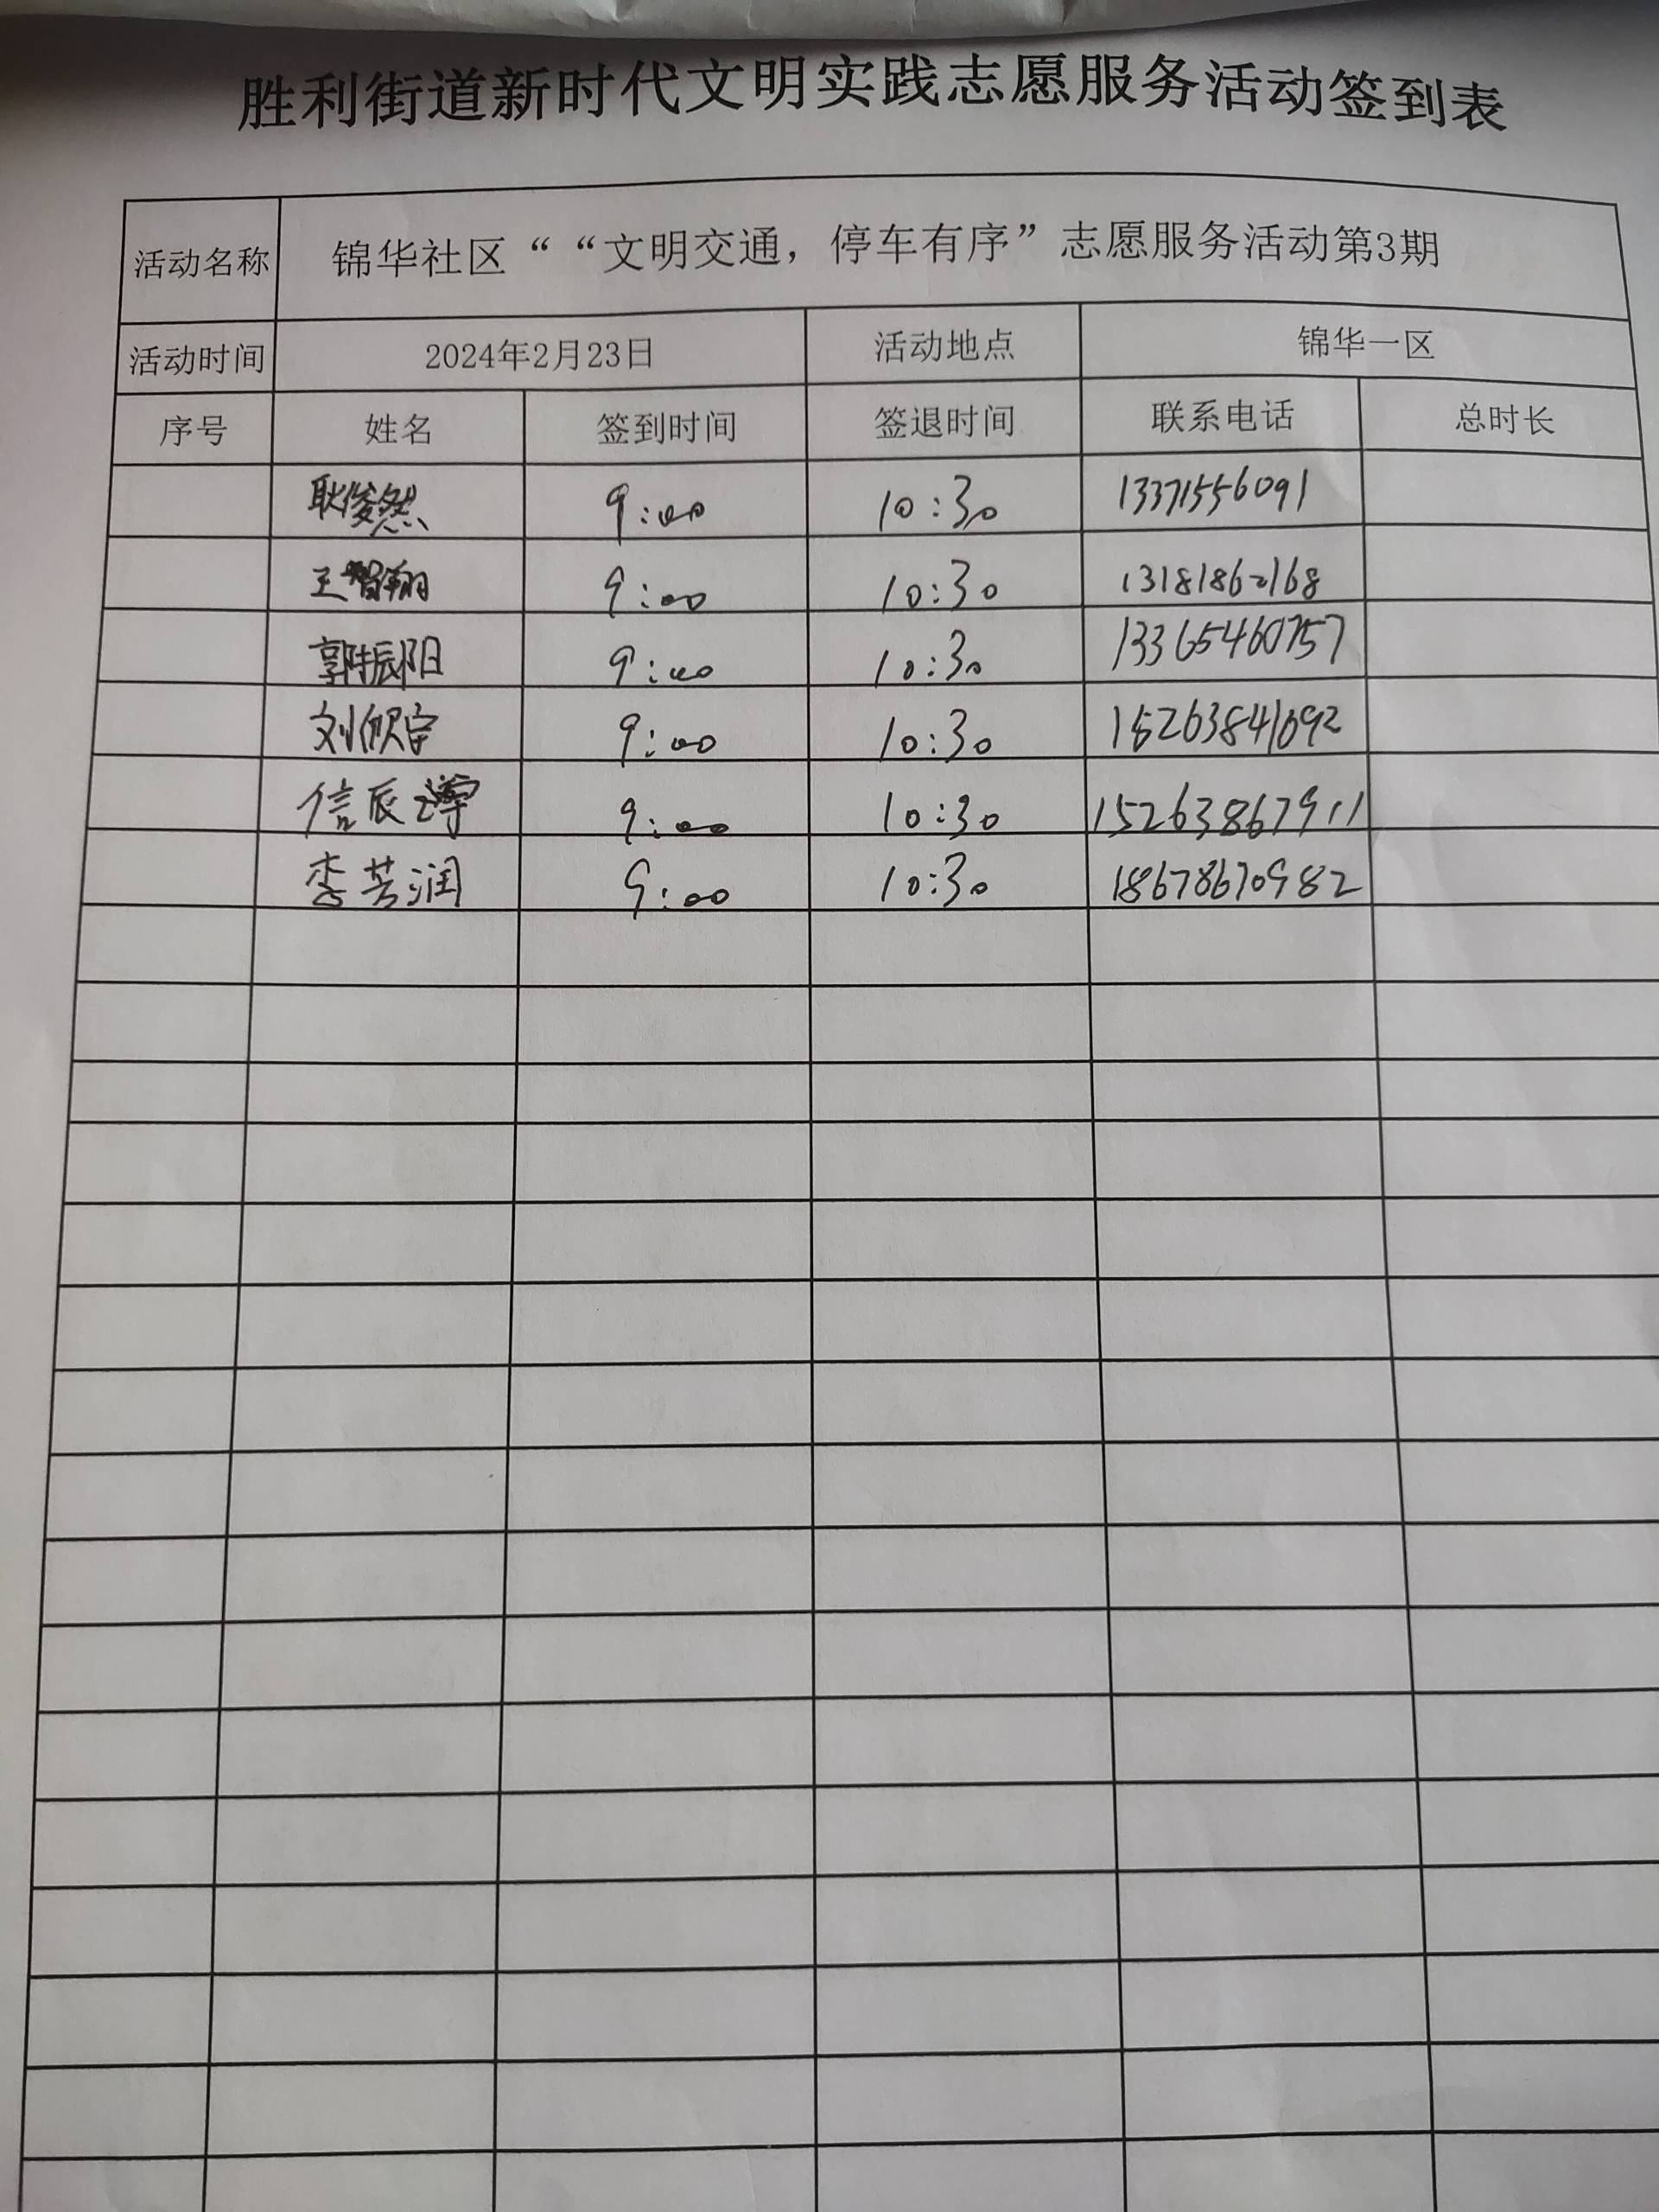 胜利街道新时代文明实践志愿服务活动签到表
活动名称 锦华社区““文明交通，停车有序”志愿服务活动第3期
活动时间 2024年2月23日 活动地点 锦华一区
序号 姓名 签到时间 签退时间 联系电话 总时长
耿俊然 9:00 10:30 13371556091
王智翔 9:00 10:30 13181862168
郭振阳 9:00 10:30 13365460757
刘欣宇 9:00 10:30 15263841092
信辰 9:00 10:30 15263867911
李芳润 9:00 10:30 18678670982